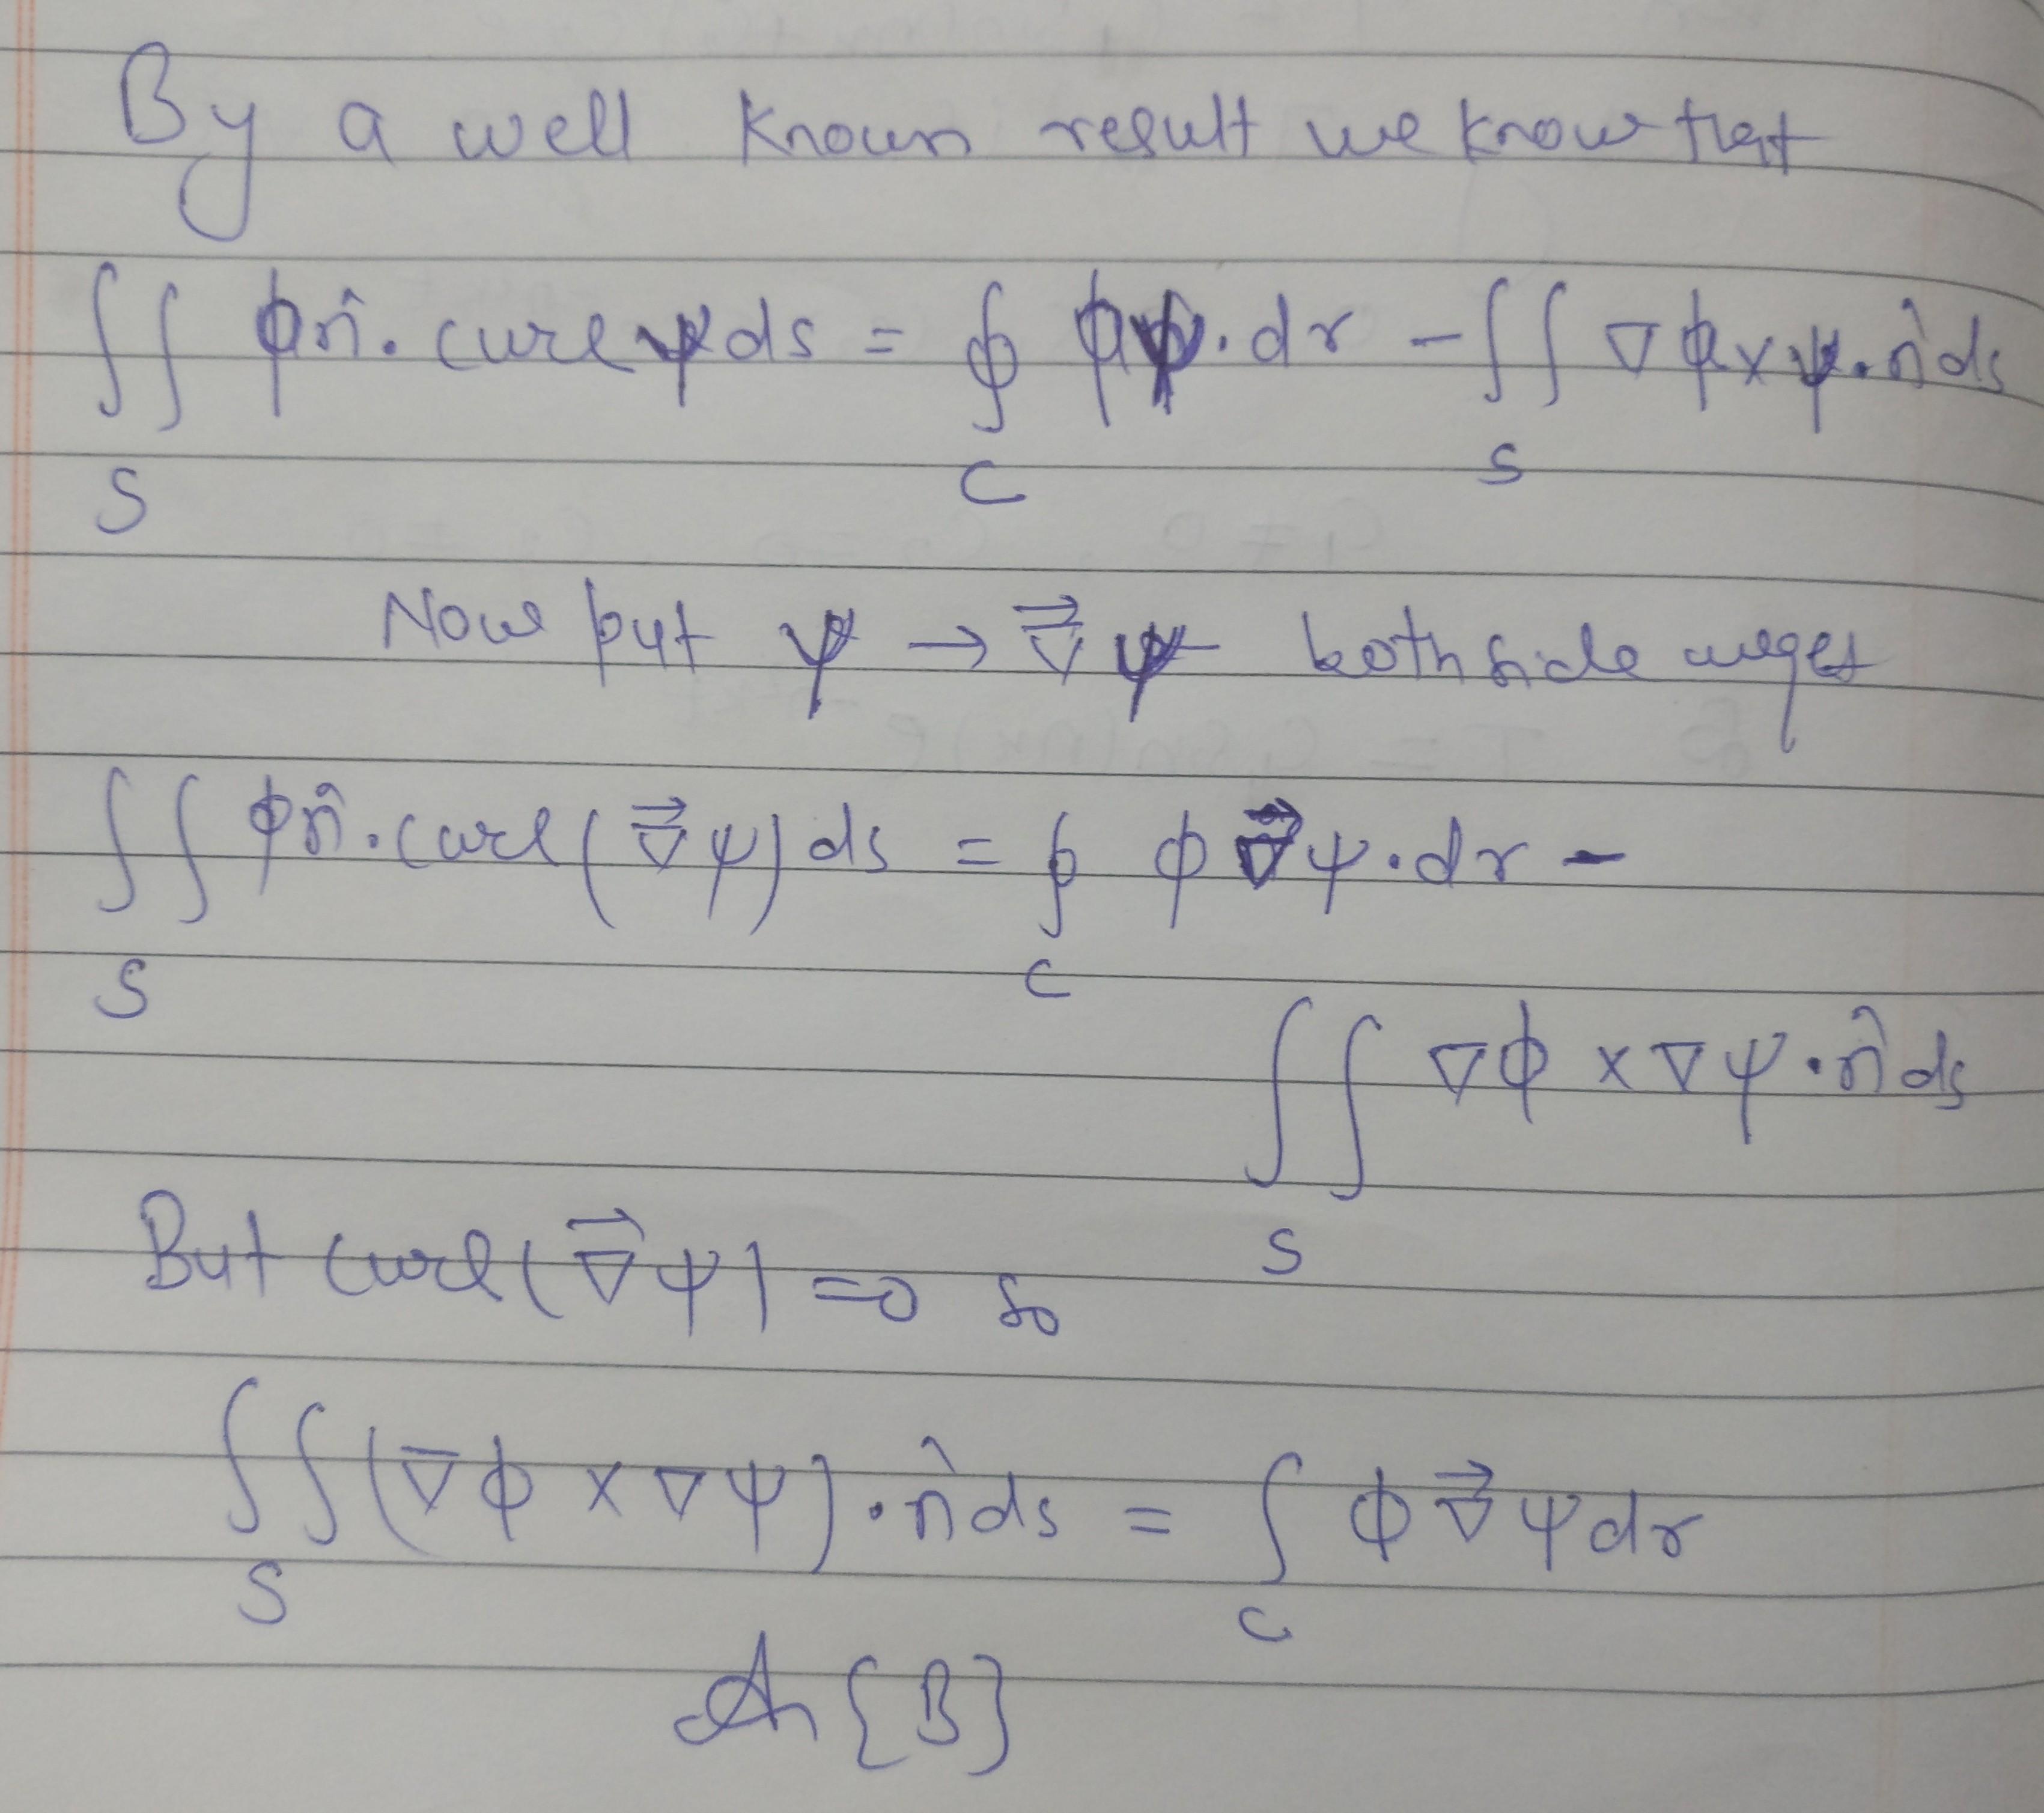 By a well known result we know that
∬ φn̂. curl ψ ds = ∮ φψ. dr - ∬ ∇φ×ψ. n̂ ds
S C S
Now put ψ → ∇⃗ψ both side we get
∬ φn̂. curl(∇⃗ψ) ds = ∮ φ ∇⃗ψ. dr -
S C
∬ ∇φ × ∇ψ. n̂ ds
S
But curl(∇⃗ψ) = 0 so
∬ (∇φ × ∇ψ). n̂ ds = ∫ φ ∇⃗ψ dr
S C
An {B}